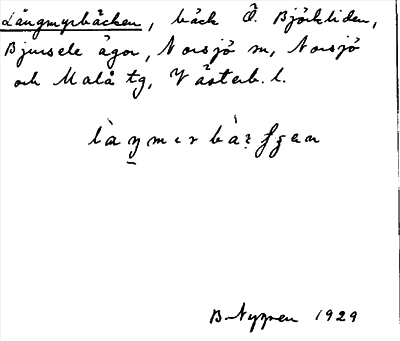 Långmyrbäcken, bäck Ö. Björkliden,
Bjursele ägor, Norsjö sn, Norsjö
och Malå tg, Västerb. l.
B. Nygren 1929